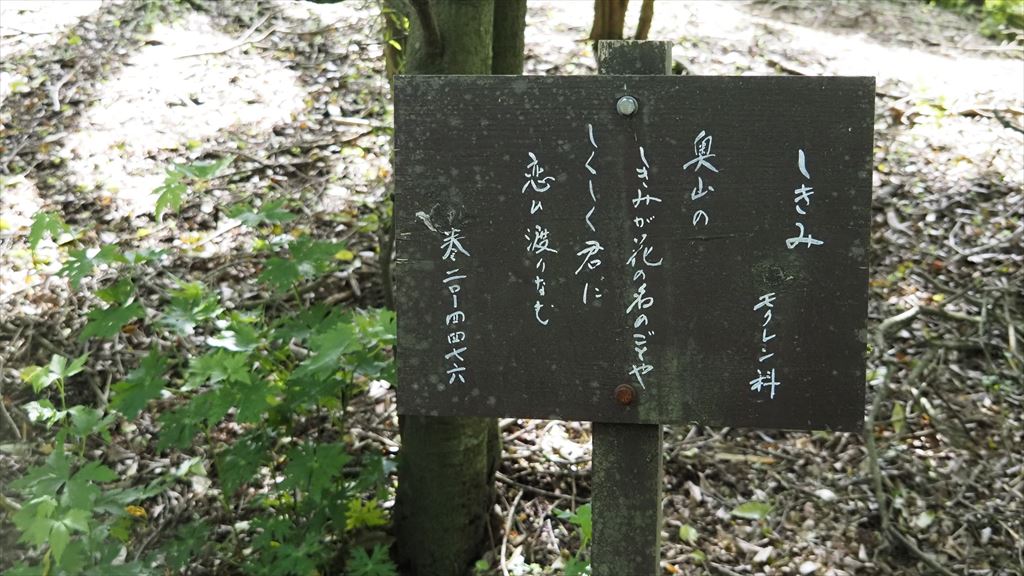 しきみ
モクレン科
奥山の
しきみが花の名のごとや
しくしく君に
恋い渡りなむ
巻二〇ー四四七六